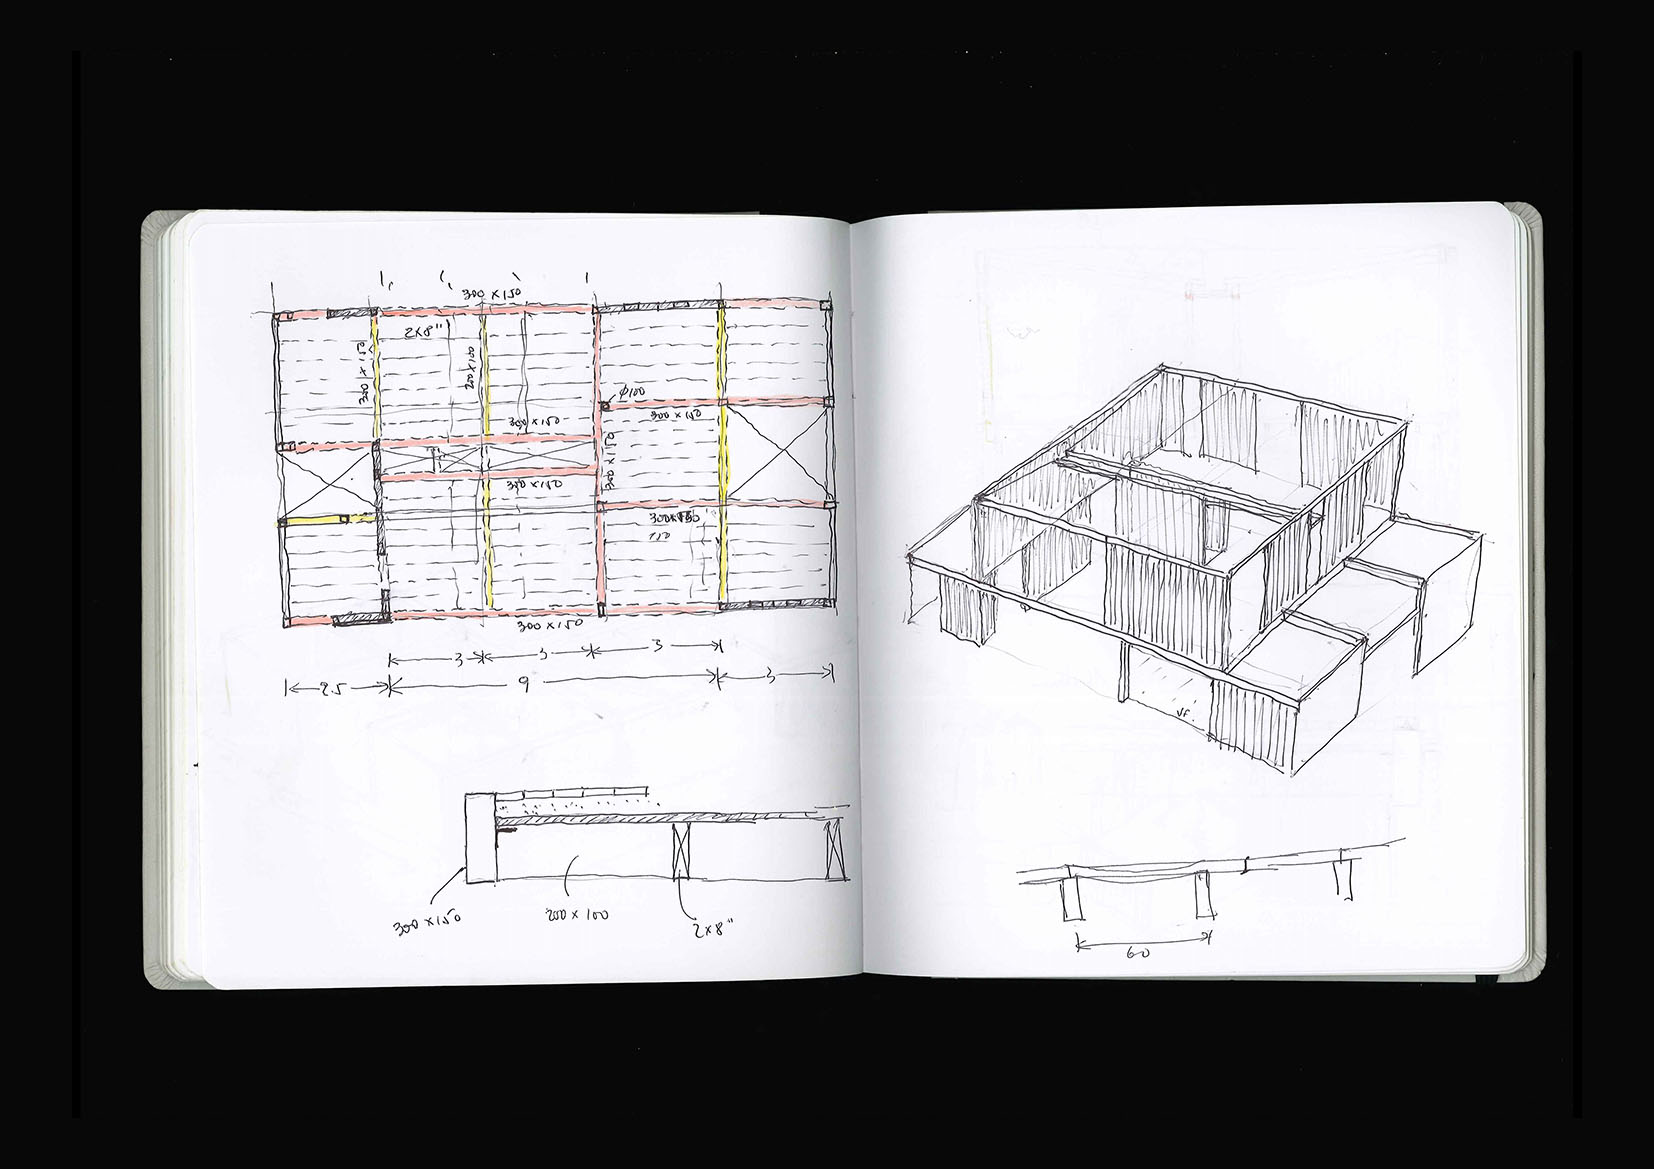 300 x 150
2x8"
300 x 150
φ100
300 x 150
300 x 150
300 x 150
300 x 150
150
300 x 150
3 3 3
2.5 9 3
300 x 150
200 x 100
2x8"
VF.
60